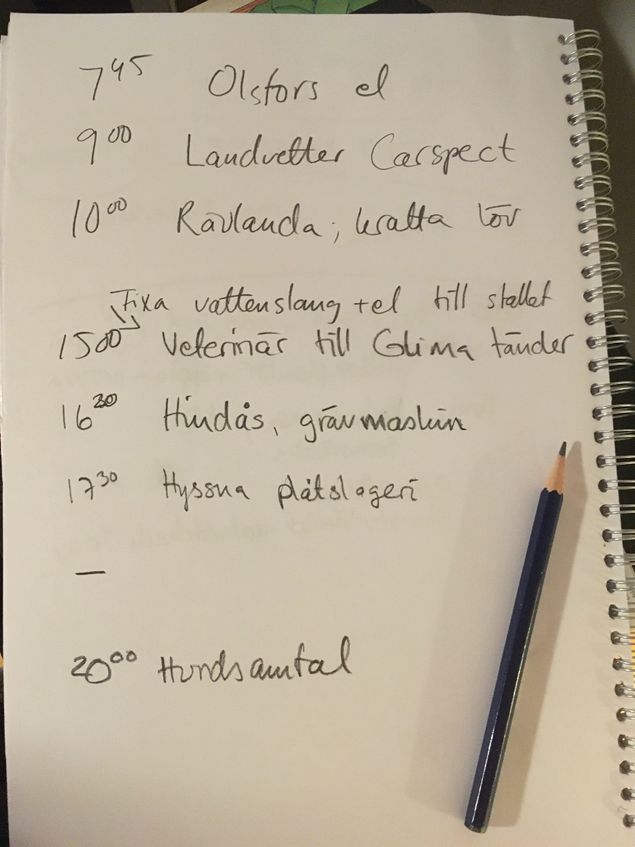 7⁴⁵ Olsfors el
9⁰⁰ Landvetter Carspect
10⁰⁰ Rävlanda; kratta löv
Fixa vattenslang + el till stallet
15⁰⁰ Veterinär till Glima tänder
16³⁰ Hindås, grävmaskin
17³⁰ Hyssna plåtslageri
—
20⁰⁰ Hundsamtal